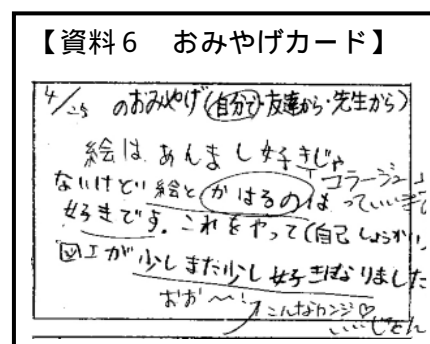 【資料6 おみやげカード】
4/25 のおみやげ(自分で・友達から・先生から)
絵は あんまし好きじゃ
ないけどい 絵と かはるのは
コラージュ
っていいます
好きです。これをやって(自己しょうかい)
図工が少しまた少し好きになりました
おお〜!
こんなカンジ♡